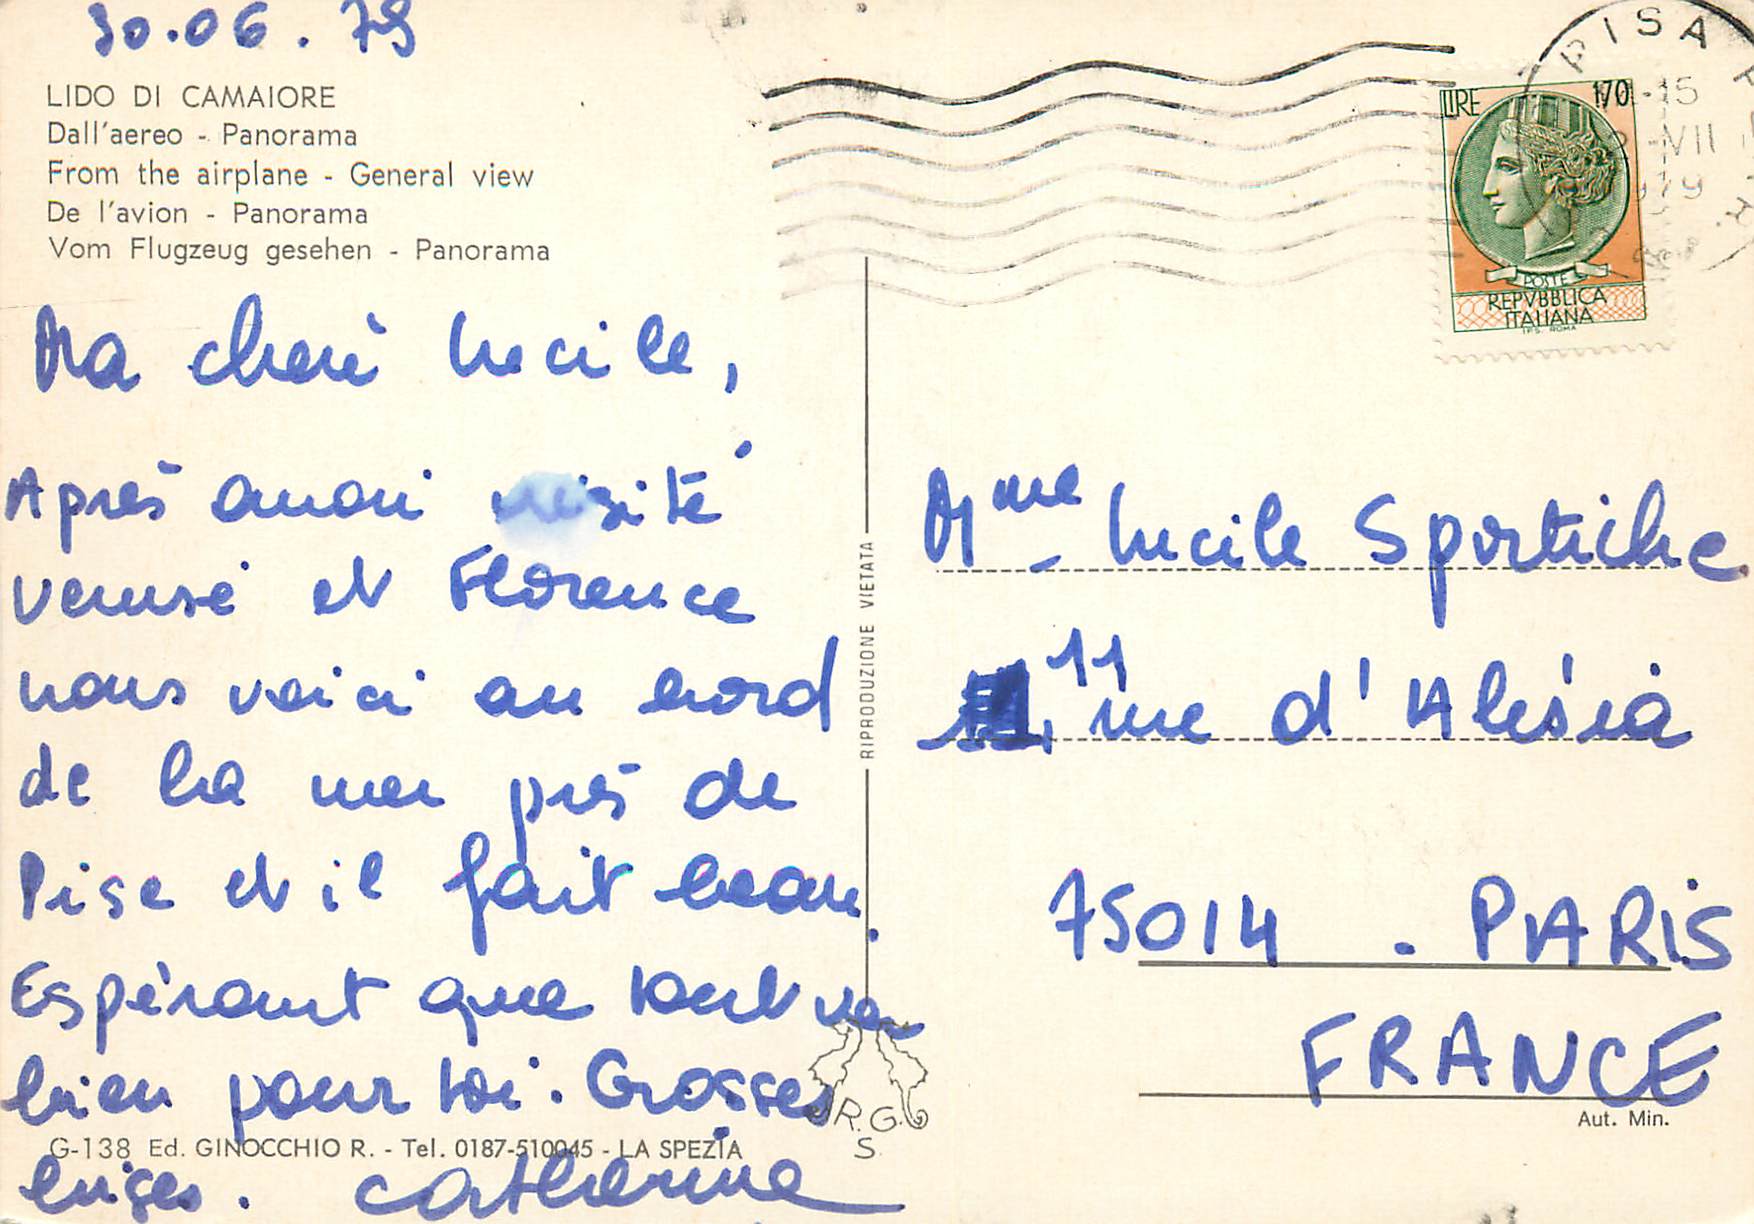 30.06.79
LIDO DI CAMAIORE
Dall'aereo - Panorama
From the airplane - General view
De l'avion - Panorama
Vom Flugzeug gesehen - Panorama
Ma cherè Lucile,
Après avoir visité
venise et Florence
nous voici au bord
de la mer près de
Pise et il fait beau.
Espérant que tout va
bien pour toi. Grosses
bises. Catherine
G-138 Ed. GINOCCHIO R. - Tel. 0187-510045 - LA SPEZIA
RIPRODUZIONE VIETATA
R.G.
S
PISA
-15
-VII
1979
LIRE 170
POSTE
REPVBBLICA
ITALIANA
I.P.S. ROMA
Mme Lucile Sportiche
11 rue d'Alésia
75014 . PARIS
FRANCE
Aut. Min.